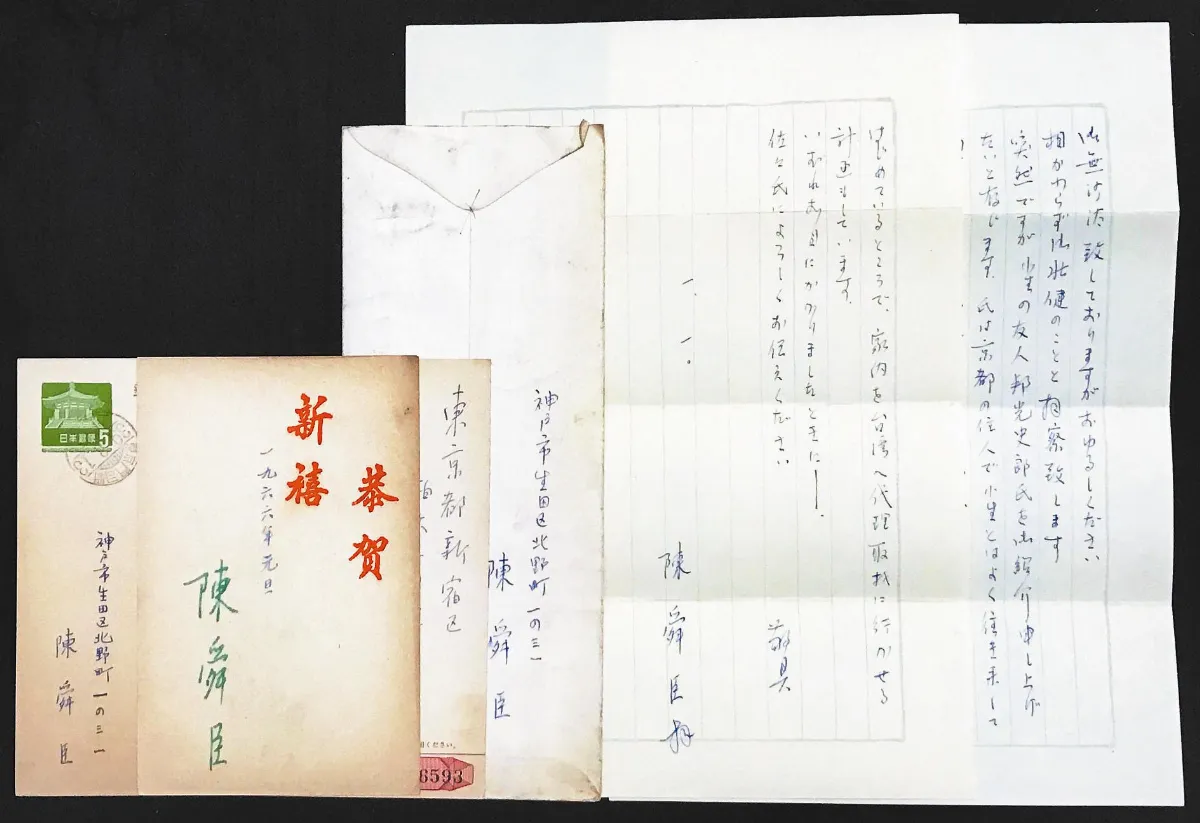 御無沙汰致しておりますがおゆるしください
相かわらず御壮健のことと拝察致します
突然ですが小生の友人邦光史郎氏を御紹介申し上げ
たいと存じます。氏は京都の住人で小生とはよく往き来して
はじめているところで、家内を台湾へ代理取材に行かせる
計画もしています。
いずれお目にかかりましたときに――。
佐々氏によろしくお伝えください
敬具
一、一。
陳舜臣拝
神戸市生田区北野町一の三一
陳舜臣
東京都新宿区
ください。
6593
恭賀
新禧
一九六六年元旦
陳舜臣
日本郵便
5
神戸市生田区北野町一の三一
陳舜臣